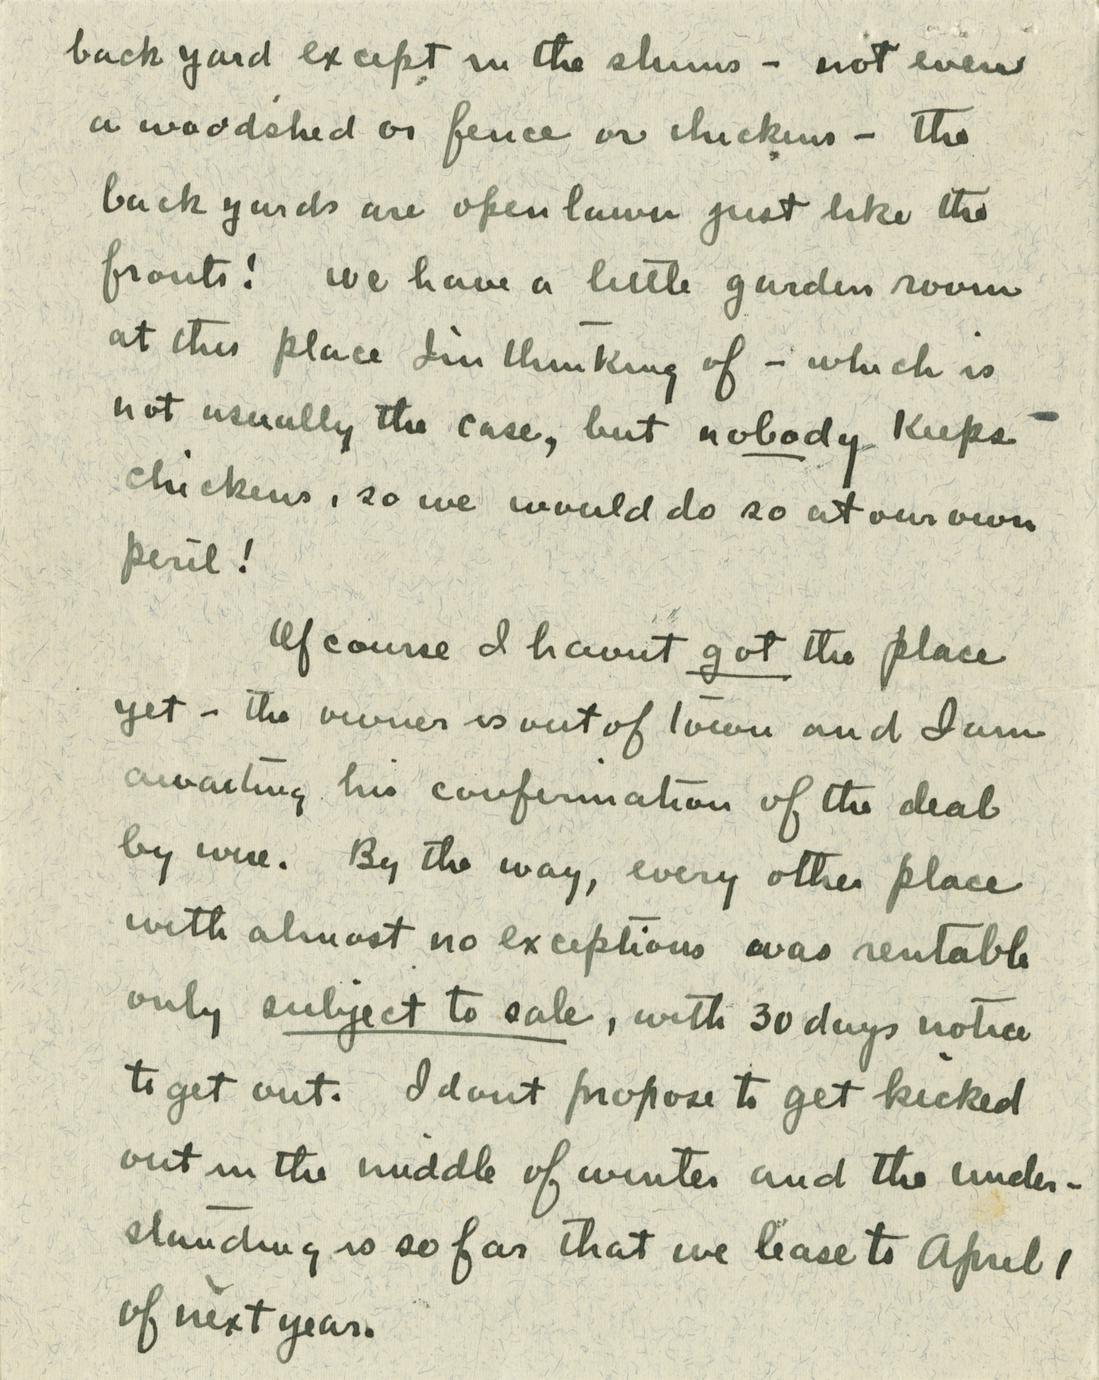 back yard except in the slums - not even
a woodshed or fence or chickens - the
back yards are open lawn just like the
fronts! we have a little garden room
at this place I'm thinking of - which is
not usually the case, but nobody keeps
chickens, so we would do so at our own
peril!
Of course I havnt got the place
yet - the owner is out of town and I am
awaiting his confirmation of the deal
by wire. By the way, every other place
with almost no exceptions was rentable
only subject to sale, with 30 days notice
to get out. I dont propose to get kicked
out in the middle of winter and the under-
standing is so far that we lease to April 1
of next year.